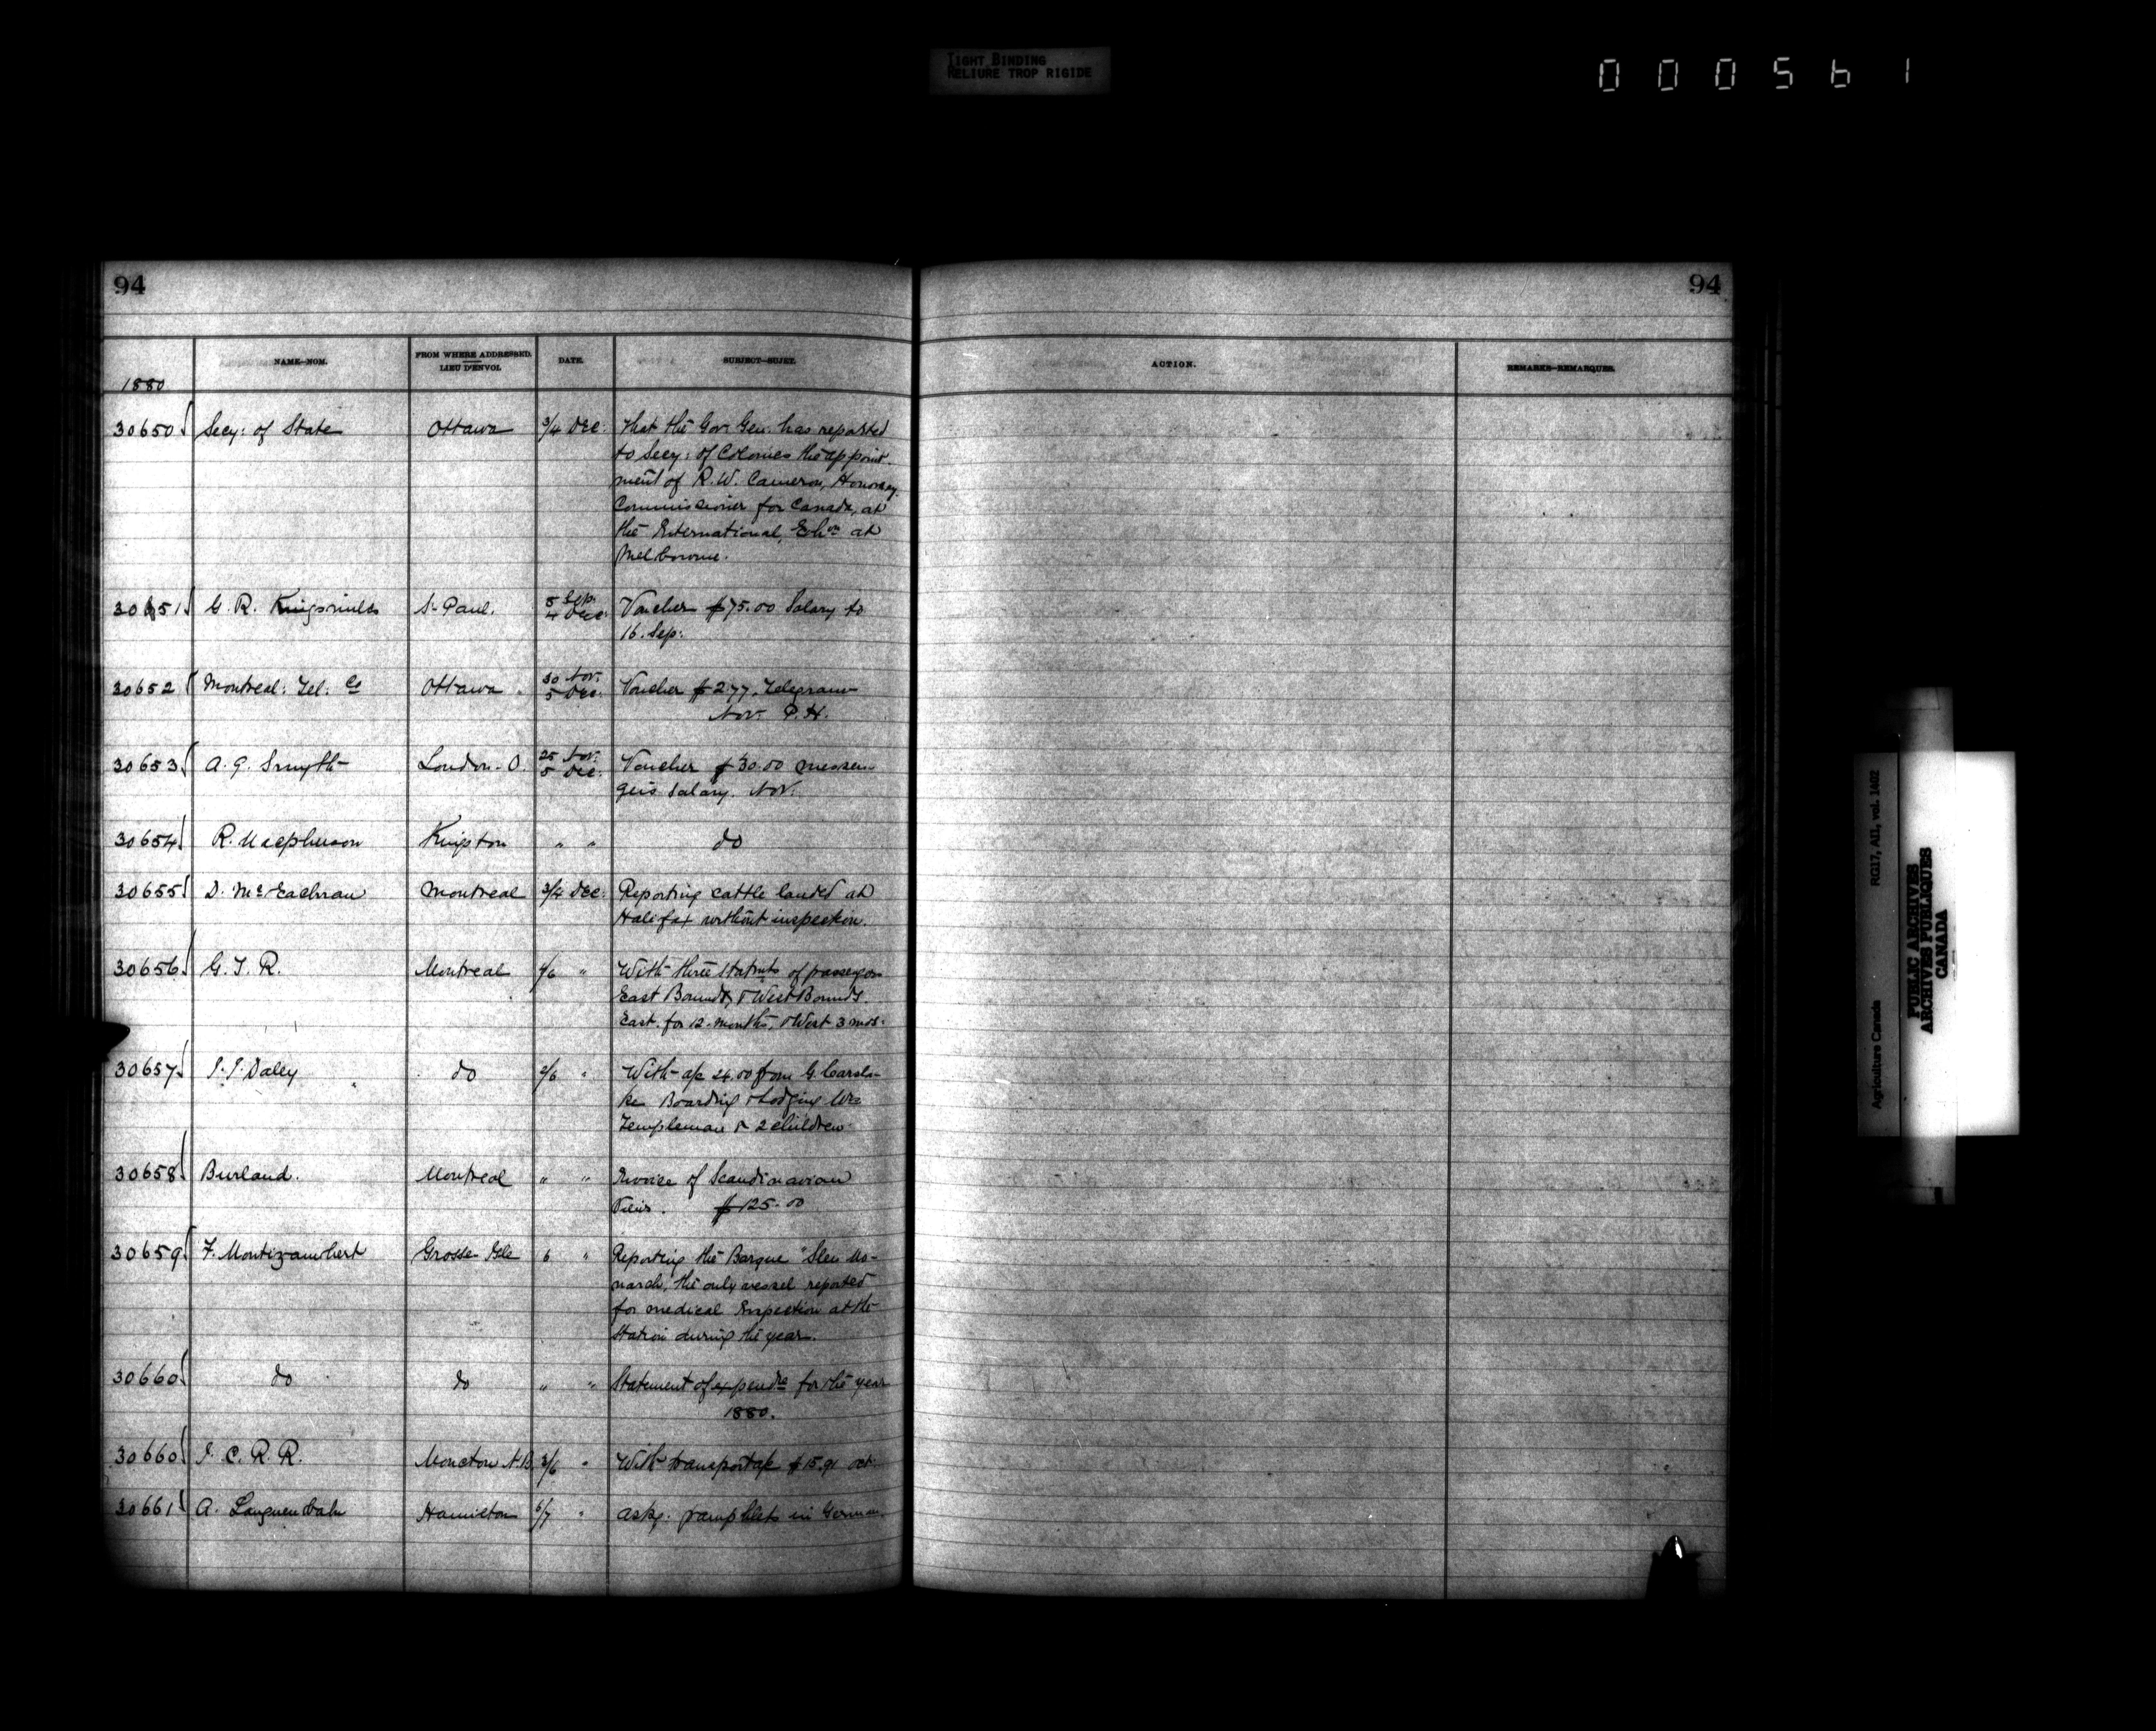 TIGHT BINDING
RELIURE TROP RIGIDE
0 0 0 5 6 1
94
94
NAME—NOM.
FROM WHERE ADDRESSED.
LIEU D'ENVOI.
DATE.
SUBJECT—SUJET.
ACTION.
REMARKS—REMARQUES.
1880
30650 Secy: of State Ottawa 3/4 Dec: That the Gov. Gen. has reported
to Secy: of Colonies the appoint-
ment of R. W. Cameron, Honorary
Commissioner for Canada, at
the International, Exhon at
Melbourne.
30651 G. R. Kingsmill St Paul. 5 Sep.
4 Dec: Voucher $75.00 Salary to
16. Sep:
30652 Montreal: Tel: Co Ottawa 30 Nov.
5 Dec. Voucher $2.77. Telegrams
Nov. P.H.
30653 A. G. Smyth London. O. 25 Nov.
5 Dec. Voucher $30.00 messen-
gers salary. Nov.
30654 R. Macpherson Kingston " " do
30655 D. McEachran Montreal 3/4 Dec. Reporting cattle landed at
Halifax without inspection.
30656 G. T. R. Montreal /6 " With three statmts of passengers
East Bounds, & West Bounds.
East. for 12. months, & West 3 mos.
30657 J. J. Daley do /6 " With a/c 24.00 from G. Carsla-
ke Boarding & Lodging
Templeman & 2 children
30658 Burland. Montreal " " Invoice of Scandinavian
$125.00
30659 F. Montizambert Grosse Isle 6 " Reporting the Barque "Glen Mo-
narch, the only vessel reported
for medical Inspection at the
Station during the year.
30660 do do " " Statement of expendre for the year
1880.
30660 I. C. R. R. Moncton N.B. 3/6 " With transport a/c $15.91 Oct.
30661 A. Hamilton 6/7 " Askg. pamphlets in German.
Agriculture Canada RG17, AII, vol. 1402
PUBLIC ARCHIVES
ARCHIVES PUBLIQUES
CANADA